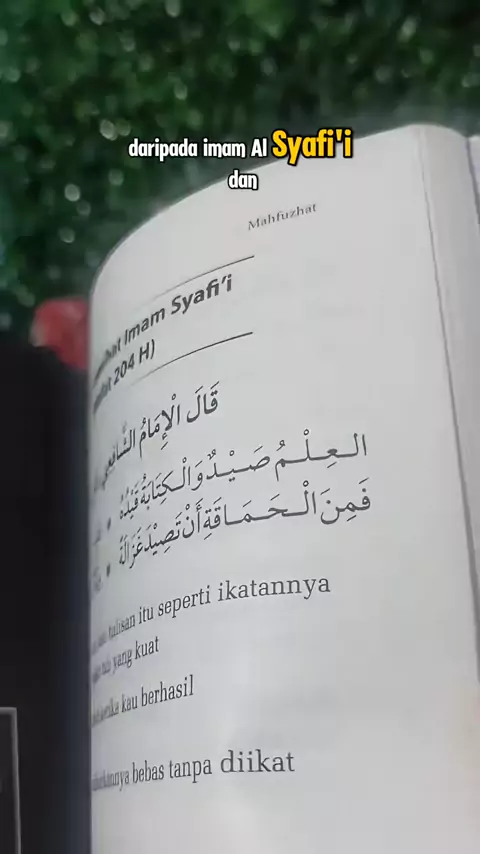 daripada imam Al Syafi'i
dan
Mahfuzhat
Imam Syafi'i
204 H)
قَالَ الْإِمَامُ الشَّافِعِي
الْعِلْمُ صَيْدٌ وَالْكِتَابَةُ قَيْدُهُ
فَمِنَ الْحَمَاقَةِ أَنْ تَصِيْدَ غَزَالَةً
tulisan itu seperti ikatannya
yang kuat
kau berhasil
bebas tanpa diikat